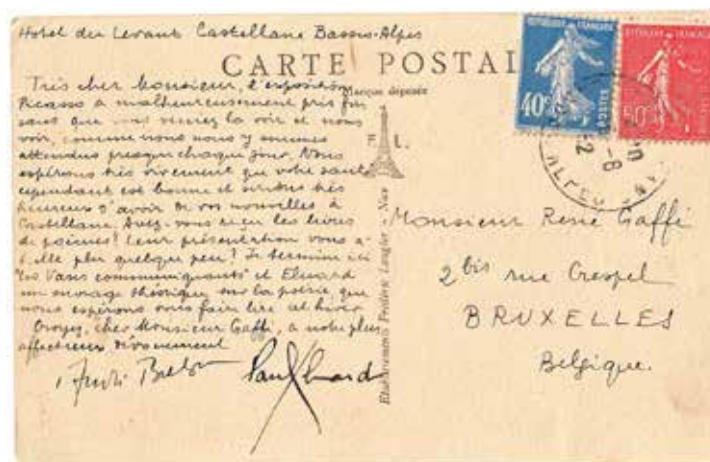 Hotel du Levant Castellane Basses-Alpes
CARTE POSTAL
Marque déposée
Très cher Monsieur, l'exposition
Picasso a malheureusement pris fin
sans que vous veniez la voir et nous
voir, comme nous nous y sommes
attendus presque chaque jour. Nous
espérons très vivement que votre santé
cependant est bonne et serions très
heureux d'avoir de vos nouvelles à
Castellane. Avez-vous reçu les livres
de poèmes? Leur présentation vous a-
t-elle plu quelque peu? Je termine ici
"Les Vases communiquants" et Eluard
un ouvrage théorique sur la poésie que
nous espérons vous faire lire cet hiver.
Croyez, cher Monsieur Gaffé, à notre plus
affectueux dévouement
André Breton Paul Eluard
L.
Etablissements Frédéric Laugier - Nice
REPUBLIQUE FRANÇAISE
40c
POSTES
REPUBLIQUE FRANÇAISE
50c
Monsieur René Gaffé
2 bis rue Crespel
BRUXELLES
Belgique.